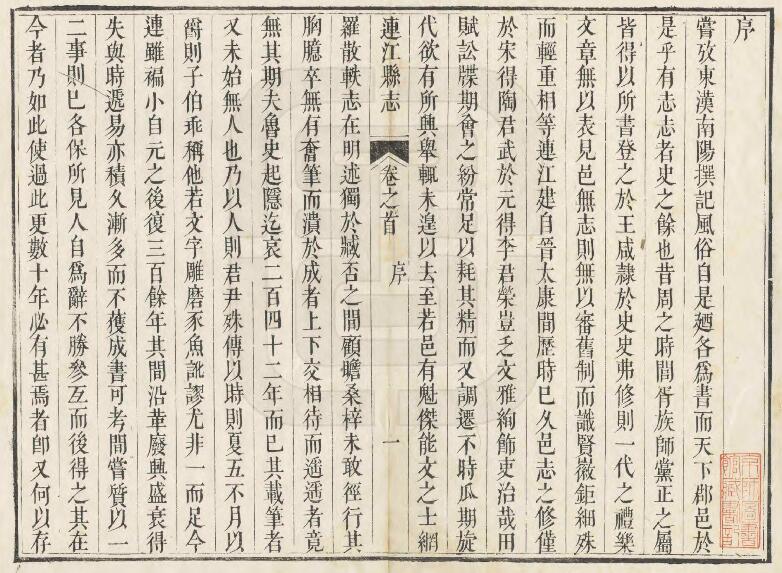 序
嘗攷東漢南陽撰記風俗自是廼各爲書而天下郡邑於
是乎有志志者史之餘也昔周之時閭胥族師黨正之屬
皆得以所書登之於王咸隷於史史弗修則一代之禮樂
文章無以表見邑無志則無以審舊制而識賢徽鉅細殊
而輕重相等連江建自晉太康間歷時已久邑志之修僅
於宋得陶君武於元得李君榮豈乏文雅絢飾吏治哉田
賦訟牒期會之紛常足以耗其精而又調遷不時瓜期旋
代欲有所興舉輒未遑以去至若邑有魁傑能文之士網
連江縣志
卷之首
序
一
羅散軼志在明述獨於臧否之間顧瞻桑梓未敢徑行其
胸臆卒無有奮筆而潰於成者上下交相待而遥遥者竟
無其期夫魯史起隱迄哀二百四十二年而已其載筆者
又未始無人也乃以人則君尹殊傳以時則夏五不月以
爵則子伯乖稱他若文字雕磨豕魚訛謬尤非一而足今
連雖褊小自元之後復三百餘年其間沿革廢興盛衰得
失與時遞易亦積久漸多而不獲成書可考間嘗質以一
二事則已各保所見人自爲辭不勝參互而後得之其在
今者乃如此使過此更數十年必有甚焉者卽又何以存